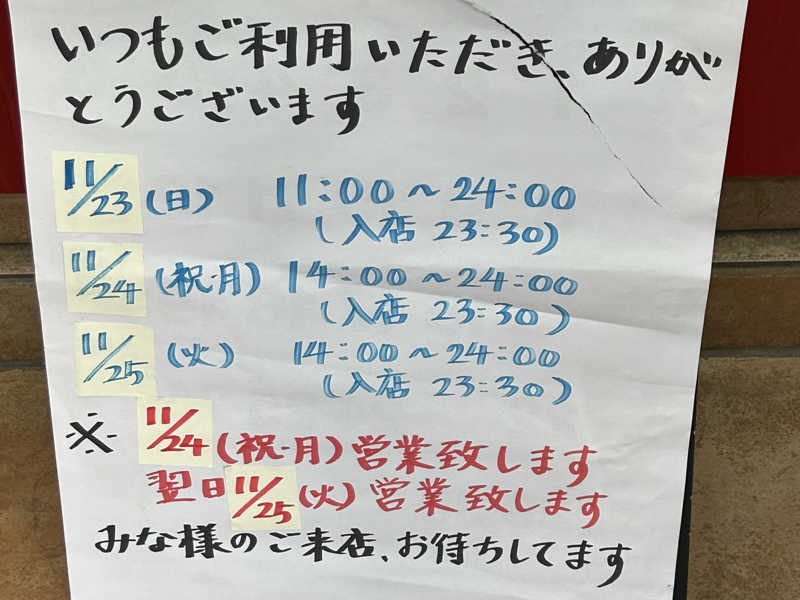 いつもご利用いただき、ありが
とうございます
11/23(日) 11:00〜24:00
(入店 23:30)
11/24(祝・月) 14:00〜24:00
(入店 23:30)
11/25(火) 14:00〜24:00
(入店 23:30)
※ 11/24(祝・月)営業致します
翌日11/25(火)営業致します
みな様のご来店、お待ちしてます